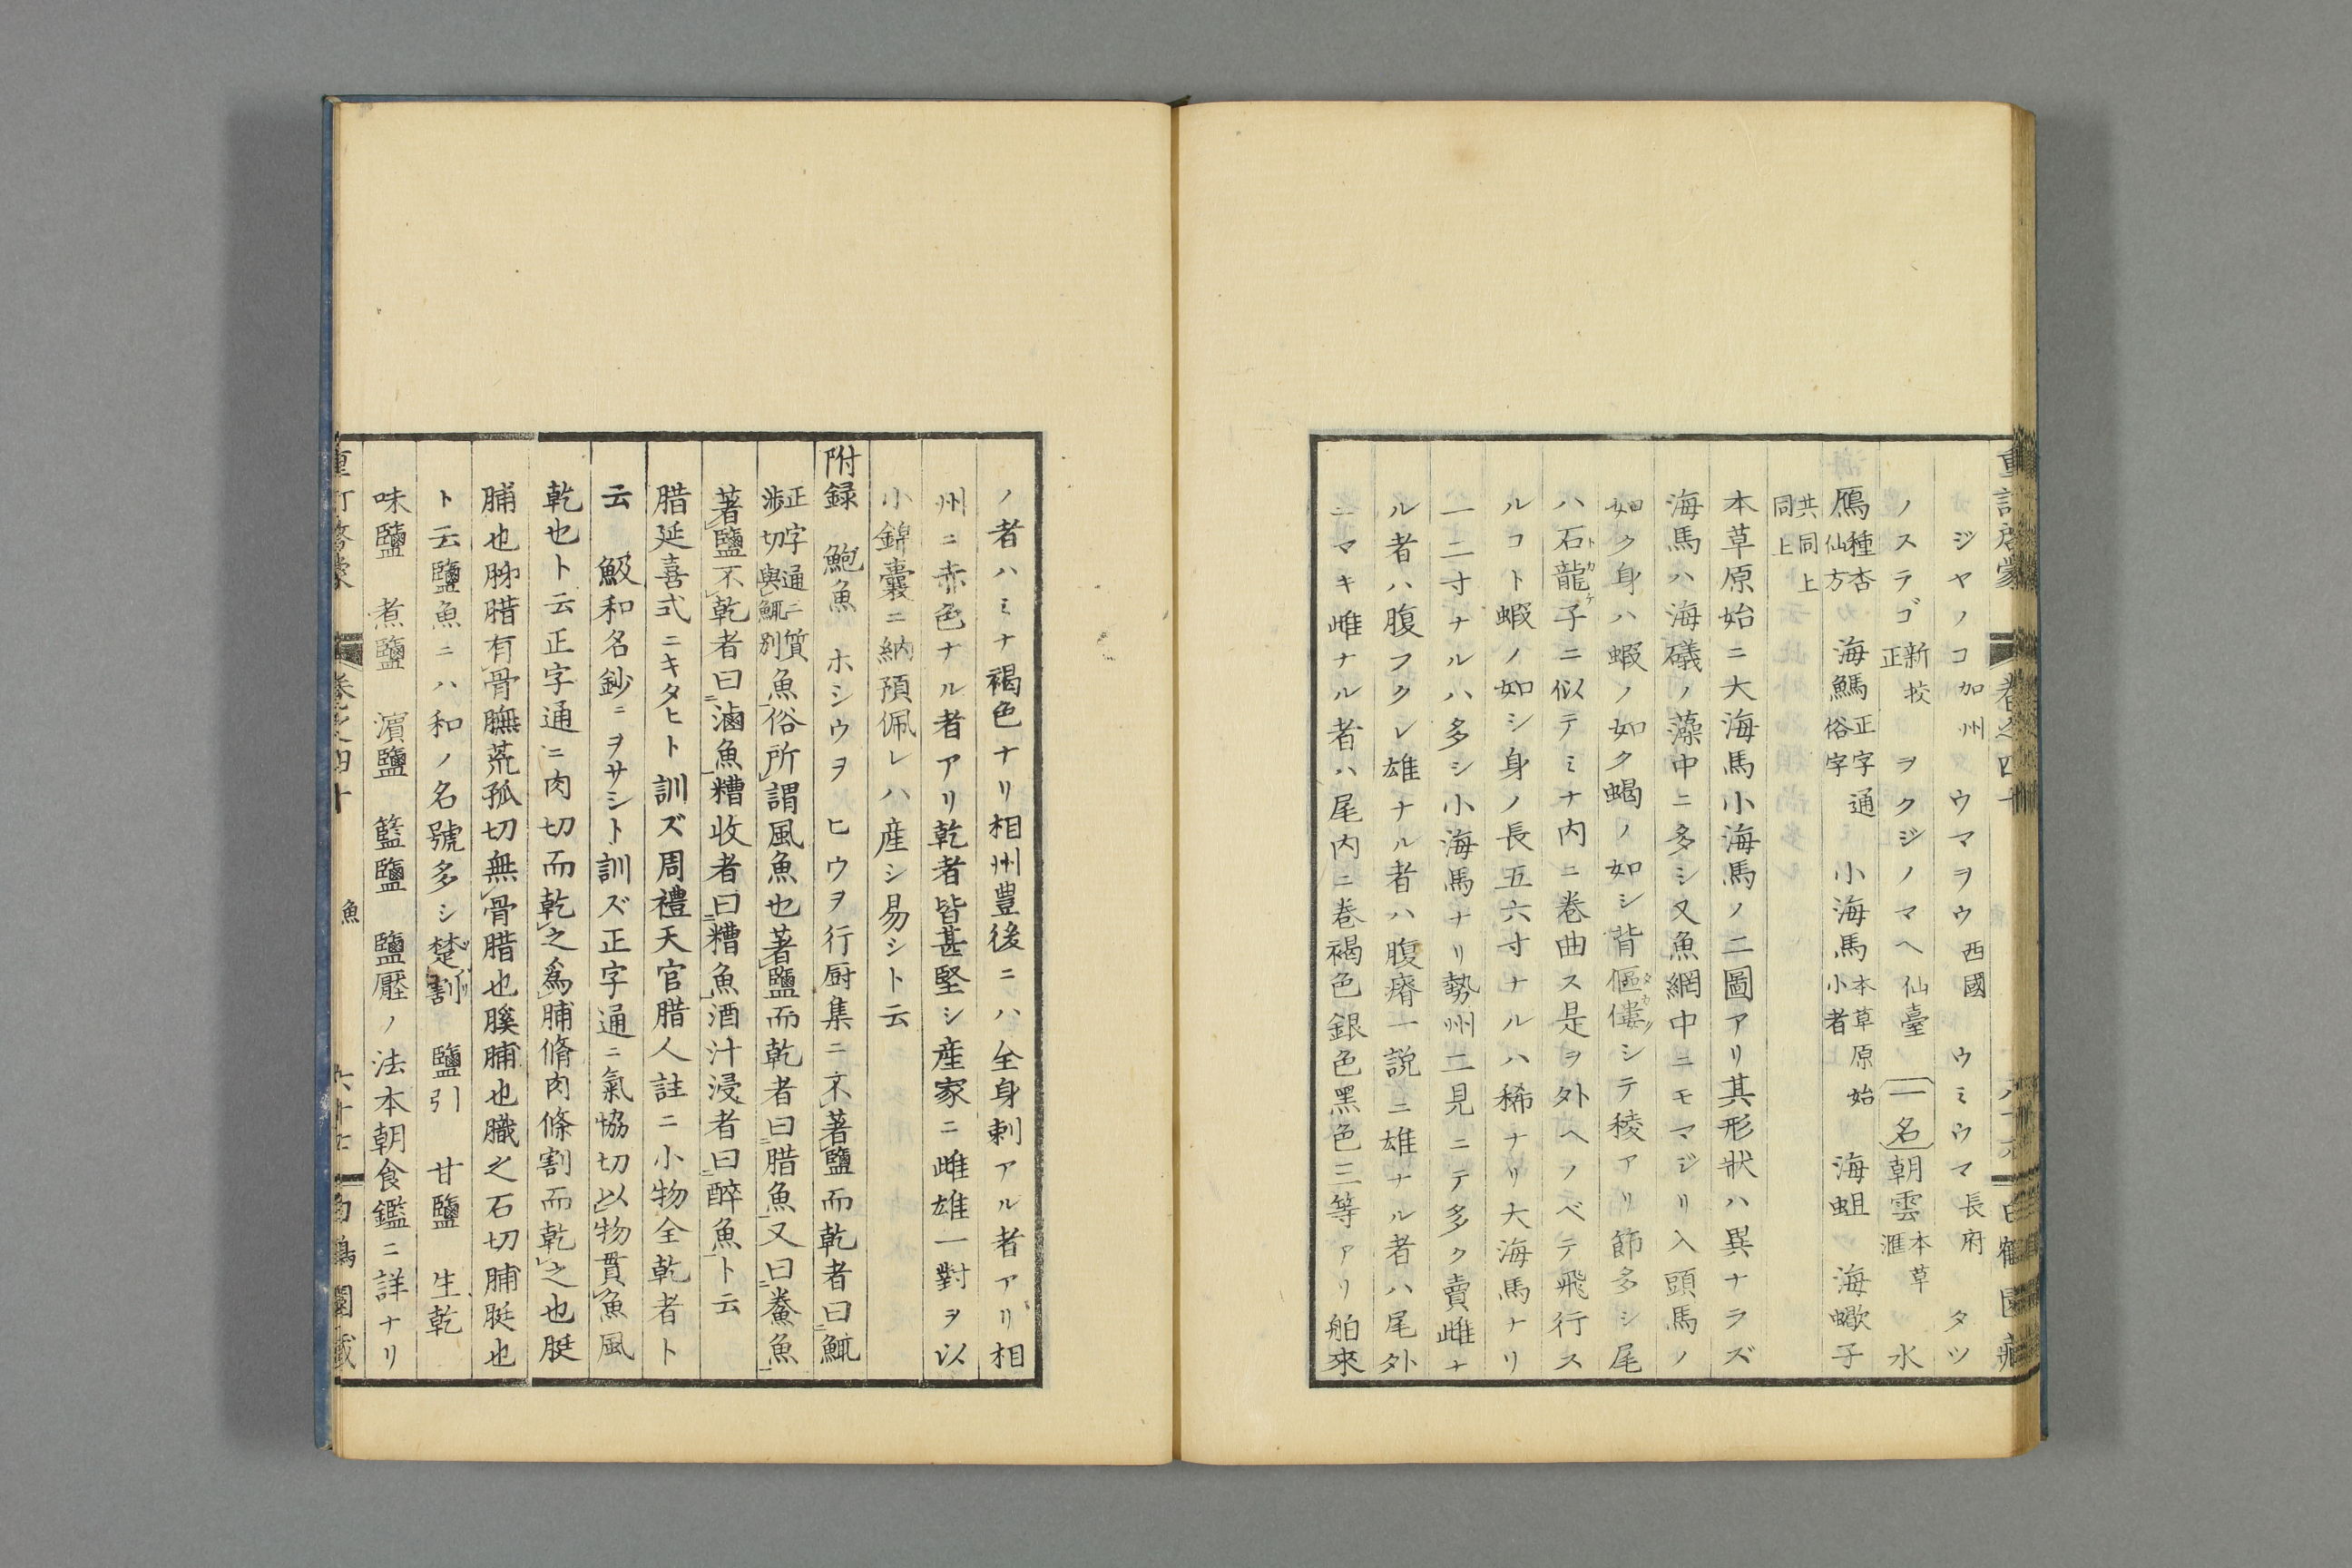 ジヤノコ加州 ウマヲウ西國 ウミウマ長府 タツ
ノステゴ新挍正 ヲクジノマヘ仙臺 一名朝雲本草滙 水
鴈種杏仙方 海鰢正字通俗字 小海馬本草原始小者 海蛆 海蠍子
共同上同上
本草原始ニ大海馬小海馬ノ二圖アリ其形狀ハ異ナラズ
海馬ハ海礒ノ藻中ニ多シ又魚網中ニモマジリ入頭馬ノ
如ク身ハ蝦ノ如ク蝎ノ如シ背傴僂シテ稜アリ節多シ尾
ハ石龍子ニ似テミナ内ニ卷曲ス是ヲ外ヘノベテ飛行ス
ルコト蝦ノ如シ身ノ長五六寸ナルハ稀ナリ大海馬ナリ
一二寸ナルハ多シ小海馬ナリ勢州二見ニテ多ク賣雌ナ
ル者ハ腹フクレ雄ナル者ハ腹瘠一説ニ雄ナル者ハ尾外
ニマキ雌ナル者ハ尾内ニ卷褐色銀色黑色三等アリ舶來
ノ者ハミナ褐色ナリ相州豊後ニハ全身刺アル者アリ相
州ニ赤色ナル者アリ乾者皆甚堅シ産家ニ雌雄一對ヲ以
小錦囊ニ納預佩レハ産シ易シト云
附録 鮑魚 ホシウヲ ヒウヲ行厨集ニ不著鹽而乾者曰鮿
正字通ニ質渉切與鮿別魚俗所謂風魚也著鹽而乾者曰腊魚又曰鮝魚
著鹽不乾者曰滷魚糟收者曰糟魚酒汁浸者曰醉魚ト云
腊延喜式ニキタヒト訓ズ周禮天官腊人註ニ小物全乾者ト
云 鮁和名鈔ニヲサシト訓ズ正字通ニ氣協切以物貫魚風
乾也ト云正字通ニ肉切而乾之爲脯脩肉條割而乾之也脡
脯也胏腊有骨膴荒孤切無骨腊也膎脯也膱之石切脯脡也
ト云鹽魚ニハ和ノ名號多シ楚割 鹽引 甘鹽 生乾
味鹽 煮鹽 濵鹽 籃鹽 鹽壓ノ法本朝食鑑ニ詳ナリ
魚